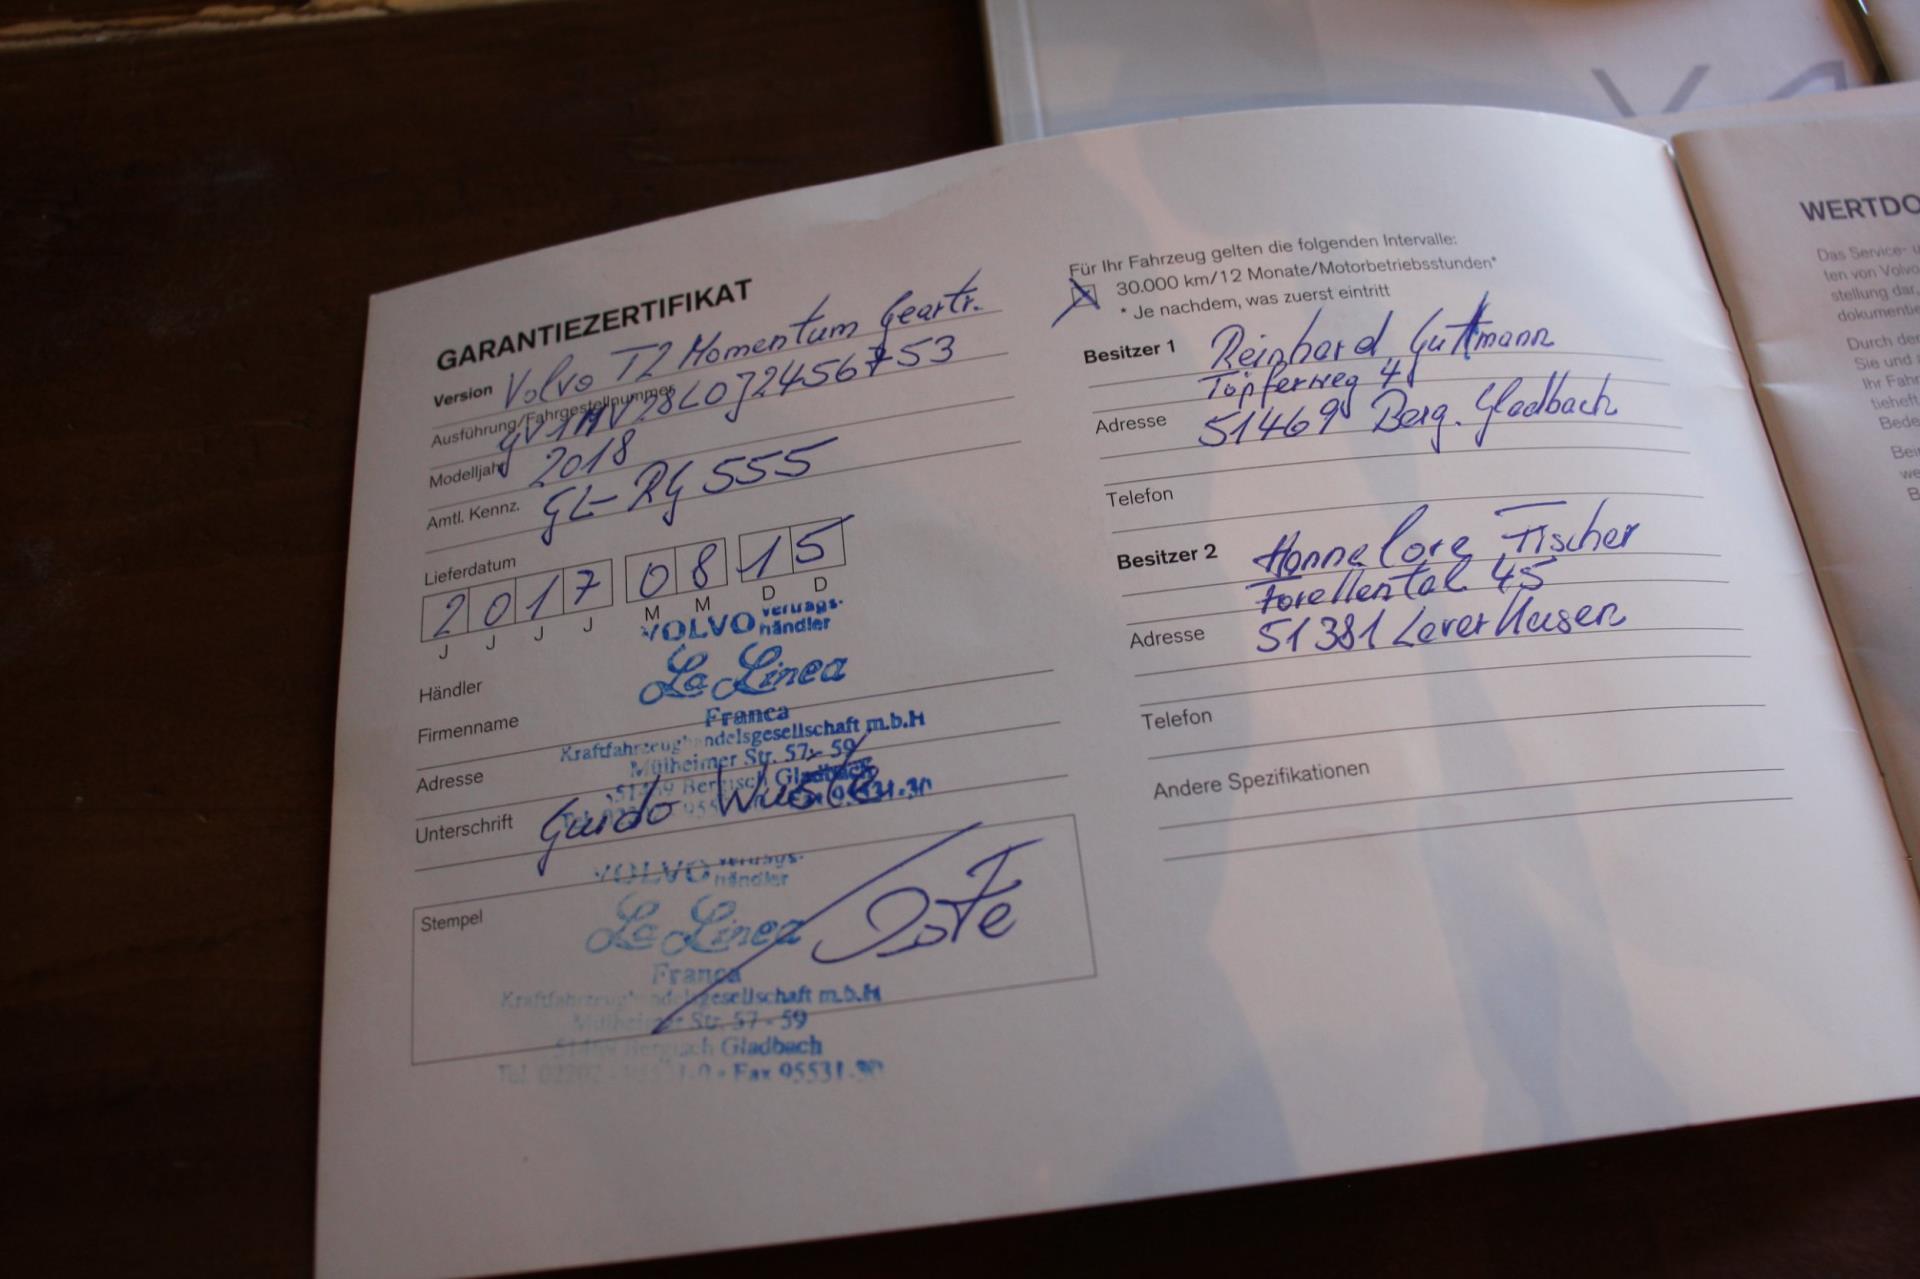 GARANTIEZERTIFIKAT
Version Volvo T2 Momentum Geartr.
Ausführung/Fahrgestellnummer YV1MV28L0J2456753
Modelljahr 2018
Amtl. Kennz. GL-RG 555
Lieferdatum
2 0 1 7 0 8 1 5
J J J J M M D D
VOLVO vertrags-
händler
Händler
La Linea
Firmenname
Franca
Kraftfahrzeughandelsgesellschaft m.b.H
Adresse
Mülheimer Str. 57-59
51469 Bergisch Gladbach
95531-30
Unterschrift Guido
VOLVO vertrags-
händler
Stempel
La Linea
Franca
Kraftfahrzeughandelsgesellschaft m.b.H
Mülheimer Str. 57-59
51469 Bergisch Gladbach
Tel. 02202 - 95531-0 • Fax 95531-30
Für Ihr Fahrzeug gelten die folgenden Intervalle:
30.000 km/12 Monate/Motorbetriebsstunden*
* Je nachdem, was zuerst eintritt
Besitzer 1 Reinhard Guttmann
Töpferweg 4
Adresse 51469 Berg. Gladbach
Telefon
Besitzer 2 Hannelore Fischer
Forellental 45
Adresse 51381 Leverkusen
Telefon
Andere Spezifikationen
WERTDO
Das Service- u
ten von Volvo
stellung dar,
dokumentie
Durch der
Sie und
Ihr Fahr
tieheft
Bede
Bei
we
B